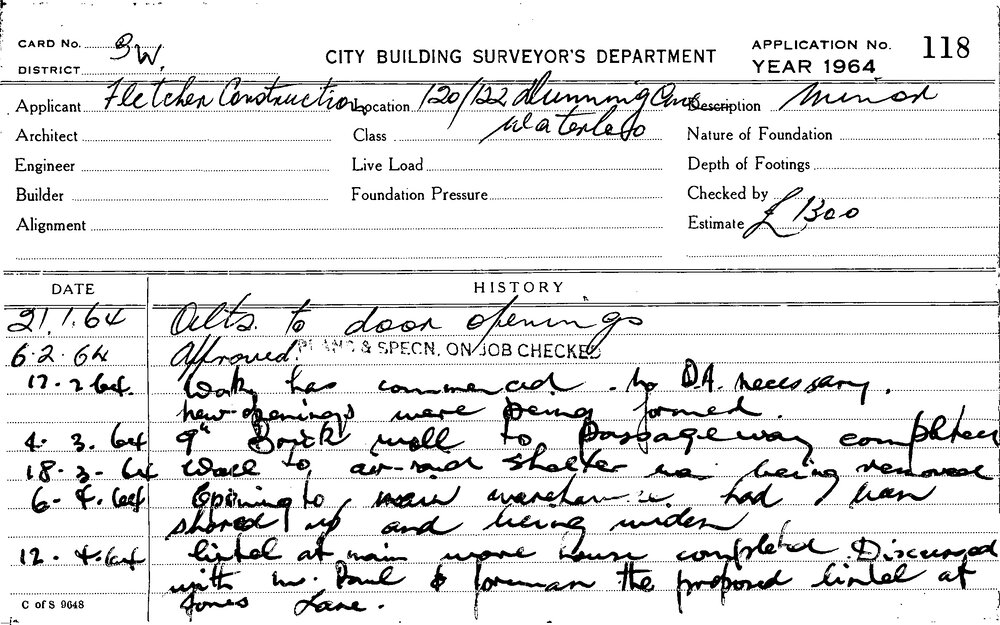 CARD No. 3 W.
DISTRICT
CITY BUILDING SURVEYOR'S DEPARTMENT
APPLICATION No. 118
YEAR 1964
Applicant Fletcher Construction Location 120/122 Dunning Ave Description Minor
Waterloo
Architect Class Nature of Foundation
Engineer Live Load Depth of Footings
Builder Foundation Pressure Checked by
Alignment Estimate £ 1300
DATE HISTORY
21.1.64 Alts. to door openings
6.2.64 Approved. PLANS & SPECN. ON JOB CHECKED
17.2.64. Work has commenced. No DA. necessary.
new openings were being formed.
4.3.64 9" Brick wall to passageway completed
18.3.64 Wall to air-raid shelter was being removed
6.4.64 Opening to main warehouse had been
shored up and being widen
12.4.64 lintel at main ware house completed. Discussed
with Mr. Paul & foreman the proposed lintel at
Jones Lane.
C of S 9648